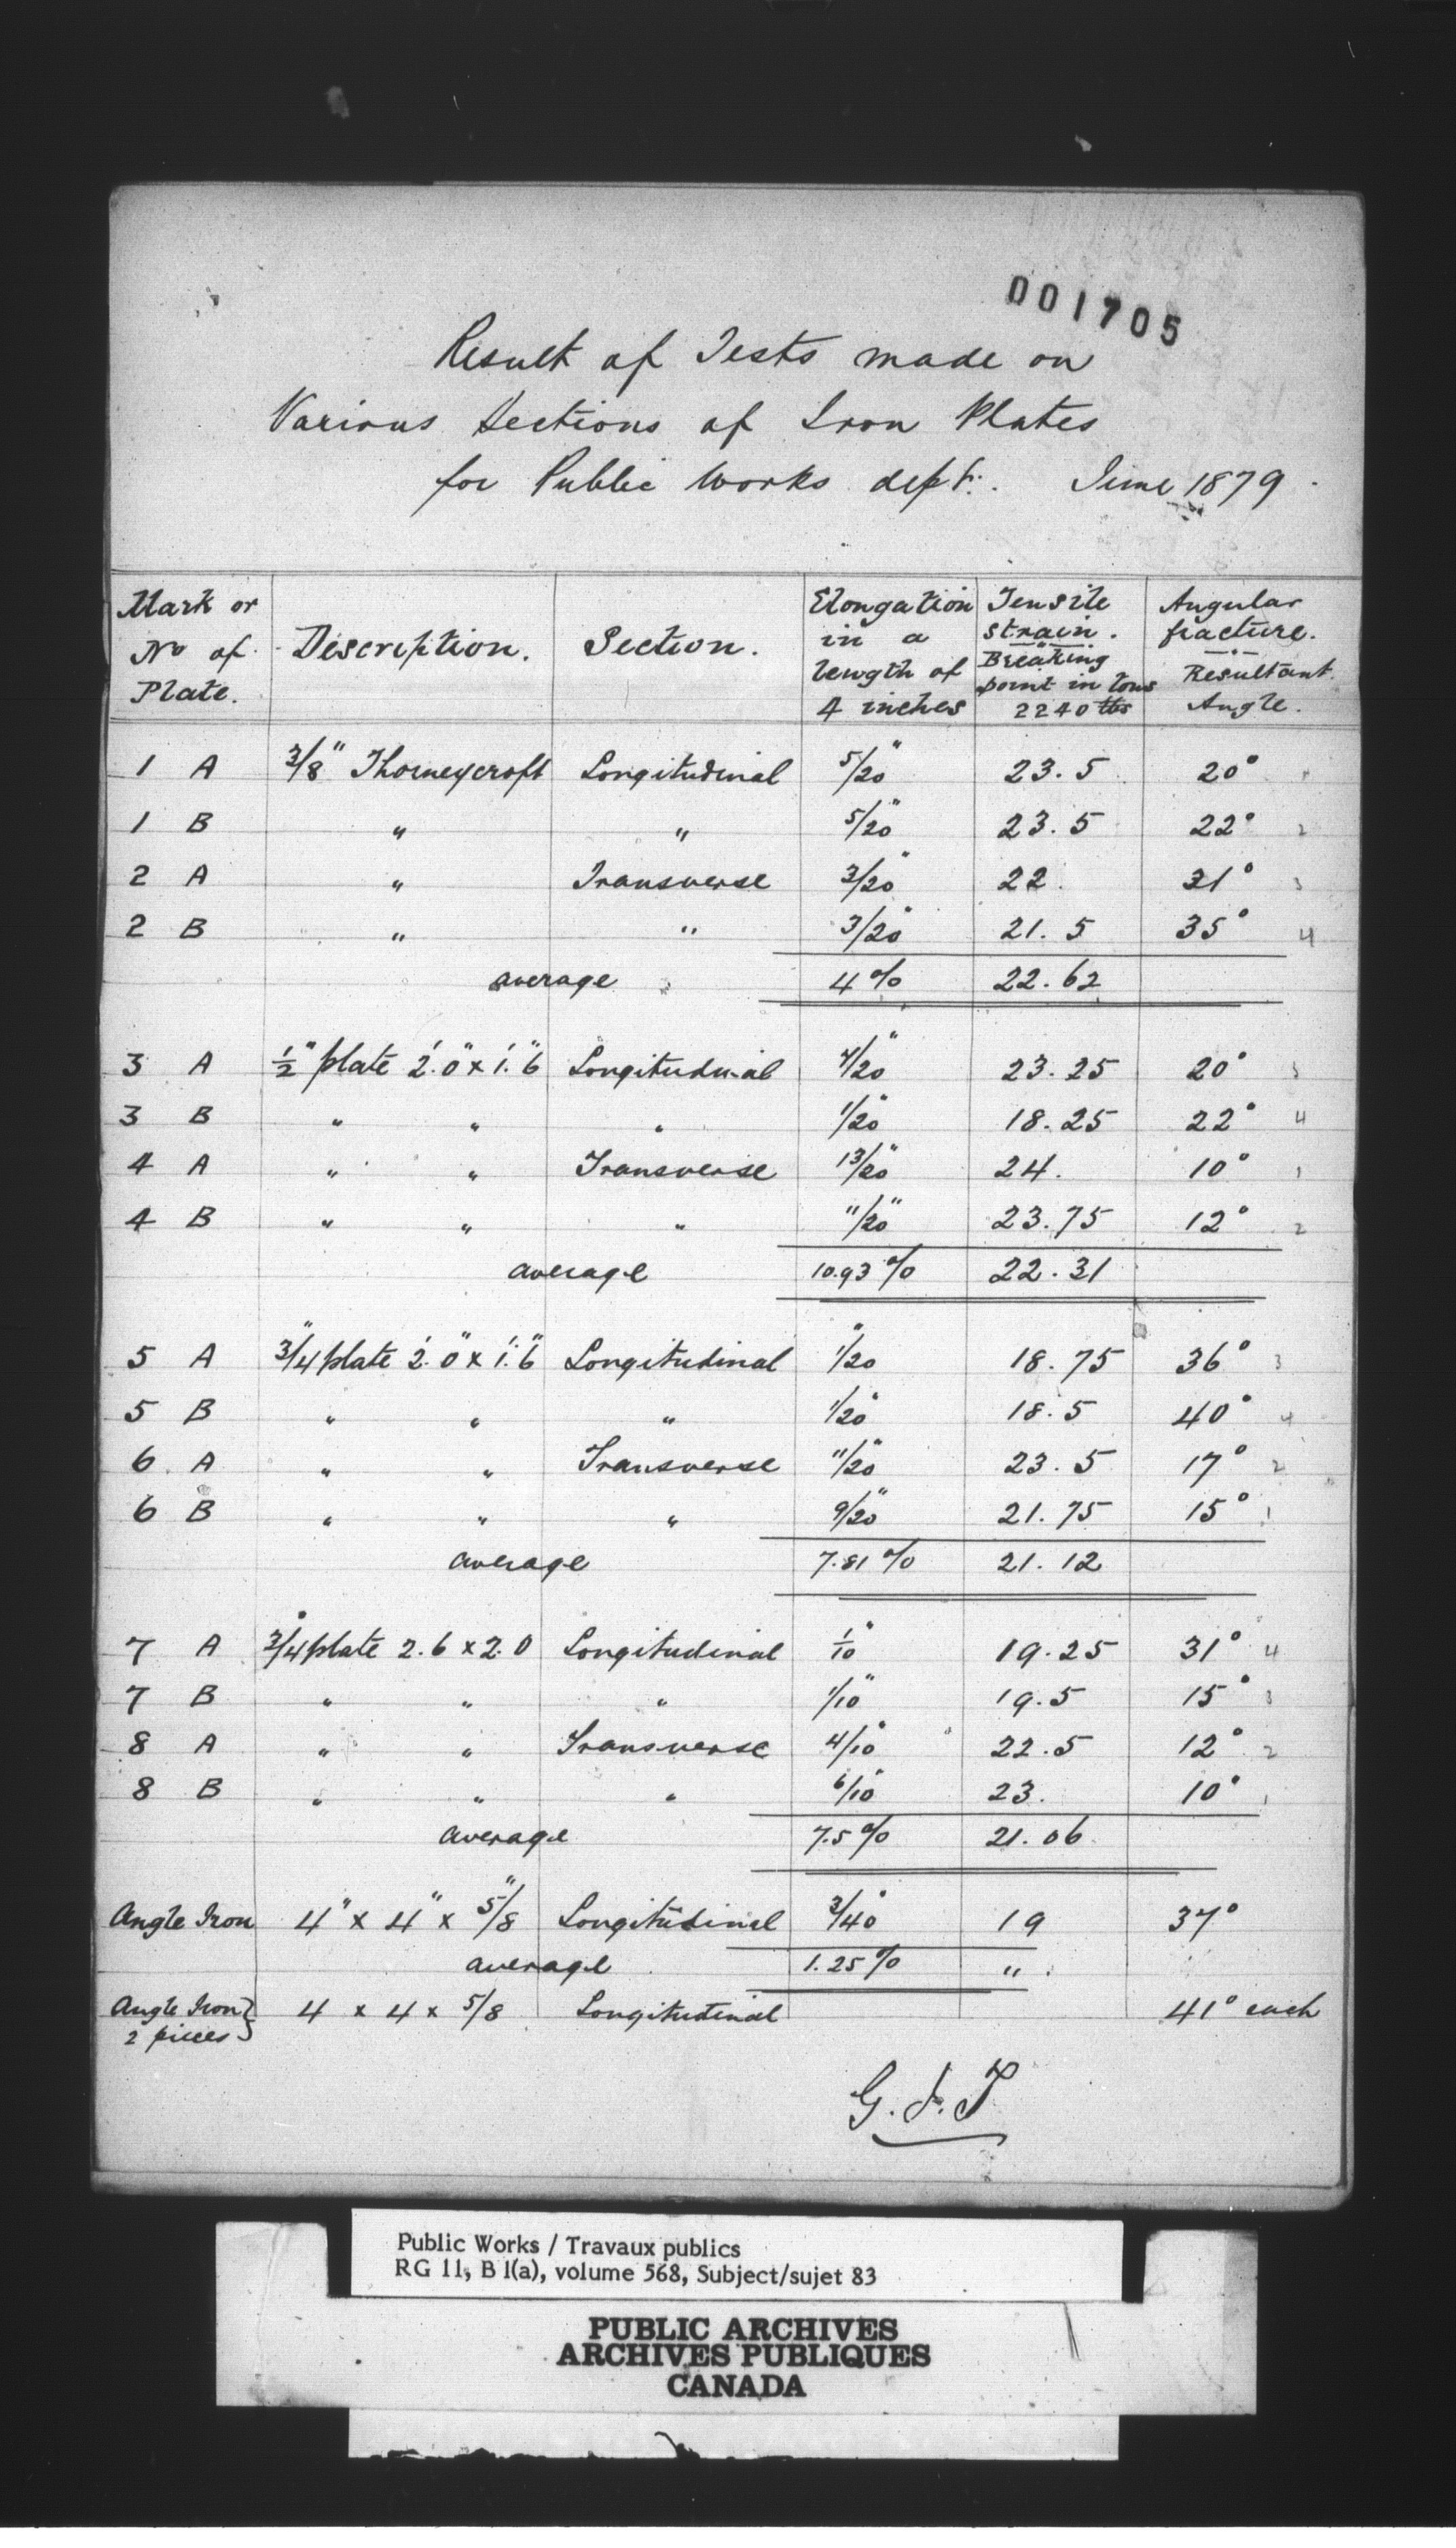 001705
Result of Tests made on
Various Sections of Iron Plates
for Public Works dept. June 1879
Mark or No of Plate. Description. Section. Elongation in a length of 4 inches Tensile strain. Breaking point in tons 2240 lbs Angular fracture. Resultant Angle.
1 A 3/8" Thorneycroft Longitudinal 5/20" 23.5 20°
1 B " " 5/20" 23.5 22° 2
2 A " Transverse 3/20" 22. 31° 3
2 B " " 3/20" 21.5 35° 4
average 4% 22.62
3 A 1/2" plate 2'.0" x 1'.6" Longitudinal 23.25 20° 3
3 B " " " 1/20" 18.25 22° 4
4 A " " Transverse 13/20" 24. 10° 1
4 B " " " 11/20" 23.75 12° 2
average 10.93% 22.31
5 A 3/4" plate 2'.0" x 1'.6" Longitudinal 1/20" 18.75 36° 3
5 B " " " 1/20" 18.5 40° 4
6 A " " Transverse 11/20" 23.5 17° 2
6 B " " " 9/20" 21.75 15° 1
average 7.81% 21.12
7 A 3/4" plate 2.6 x 2.0 Longitudinal 1/10" 19.25 31° 4
7 B " " " 1/10" 19.5 15° 3
8 A " " Transverse 4/10" 22.5 12° 2
8 B " " " 6/10" 23. 10° 1
average 7.5% 21.06
Angle Iron 4" x 4" x 5/8" Longitudinal 3/40" 19 37°
average 1.25% "
Angle Iron 2 pieces } 4 x 4 x 5/8 Longitudinal 41° each
Public Works / Travaux publics
RG 11, B 1(a), volume 568, Subject/sujet 83
PUBLIC ARCHIVES
ARCHIVES PUBLIQUES
CANADA